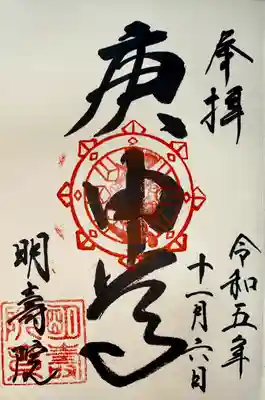 奉拝
令和五年
十一月六日
庚申尊
明壽院